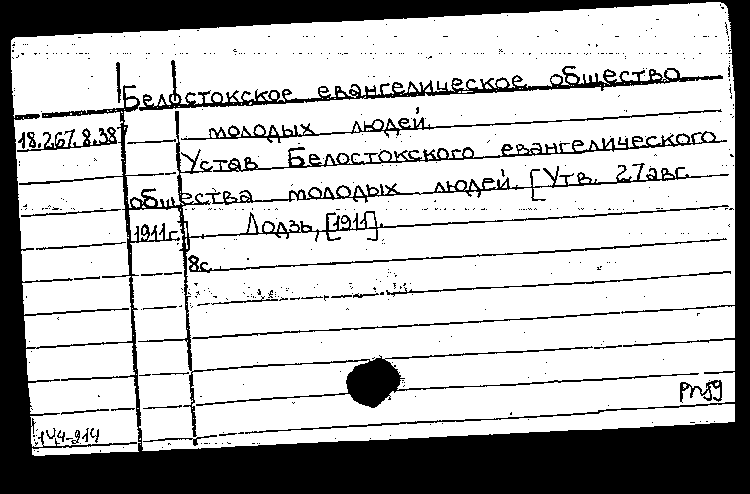 Белостокское евангелическое общество
18.267.8.38 молодых людей.
Устав Белостокского евангелического
общества молодых людей. [Утв. 27 авг.
1911 г.]. Лодзь, [1911].
8с.
144-214